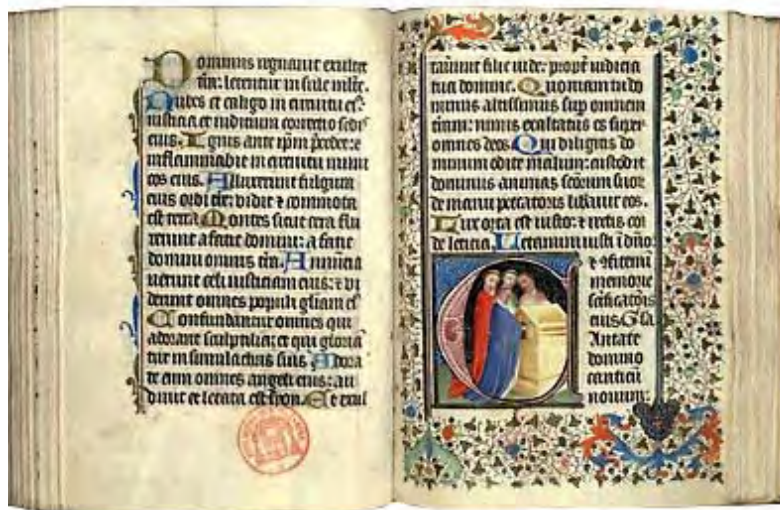 Dominus regnavit exultet
t̄rra: letentur in sule mlte.
Nubes et caligo in circuitu eı̄:
iusticia et iudicium correctio sedis
eius. Ignis ante ip̄m p̄cedet: ⁊
inflammabit in circuitu inimi
cos eius. Alluxerunt fulgura
eius orbi t̄re: vidit ⁊ commota
est terra Montes sicut cera flu
xerunt a facie domini: a facie
domini omnis t̄ra. Annūcia
verunt celi iusticiam eius: ⁊ vi
derunt omnes populi gl̄iam eı̄
Confundantur omnes qui
adorant sculptilia: et qui gloriā
tur in simulachris suis Adora
te eum omnes angeli eius: au
divit et letata est syon. Et exul
taverunt filie iude: propt̄ iudicia
tua domine. Quoniam tu do
minus altissimus sup omnem
t̄ram: nimis exaltatus es super
omnes deos Qui diligitis do
minum odite malum: custodit
dominus animas sc̄orum suor
de manu peccatoris libavit eos.
Lux orta est iusto: ⁊ rectis cor
de leticia. Letamini iusti ī dn̄o:
⁊ ꝯfitemī
memorie
sc̄ificatiōis
eius Gl̄a
Antate
domino
canticū
novum: